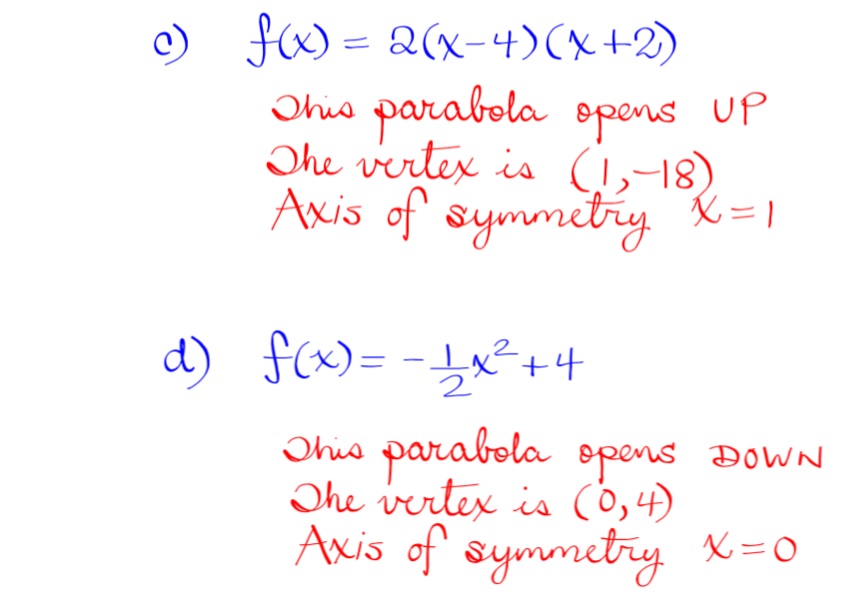 c) f(x) = 2(x-4)(x+2)
This parabola opens UP
The vertex is (1,-18)
Axis of symmetry x=1
d) f(x)= -1/2x²+4
This parabola opens DOWN
The vertex is (0,4)
Axis of symmetry x=0